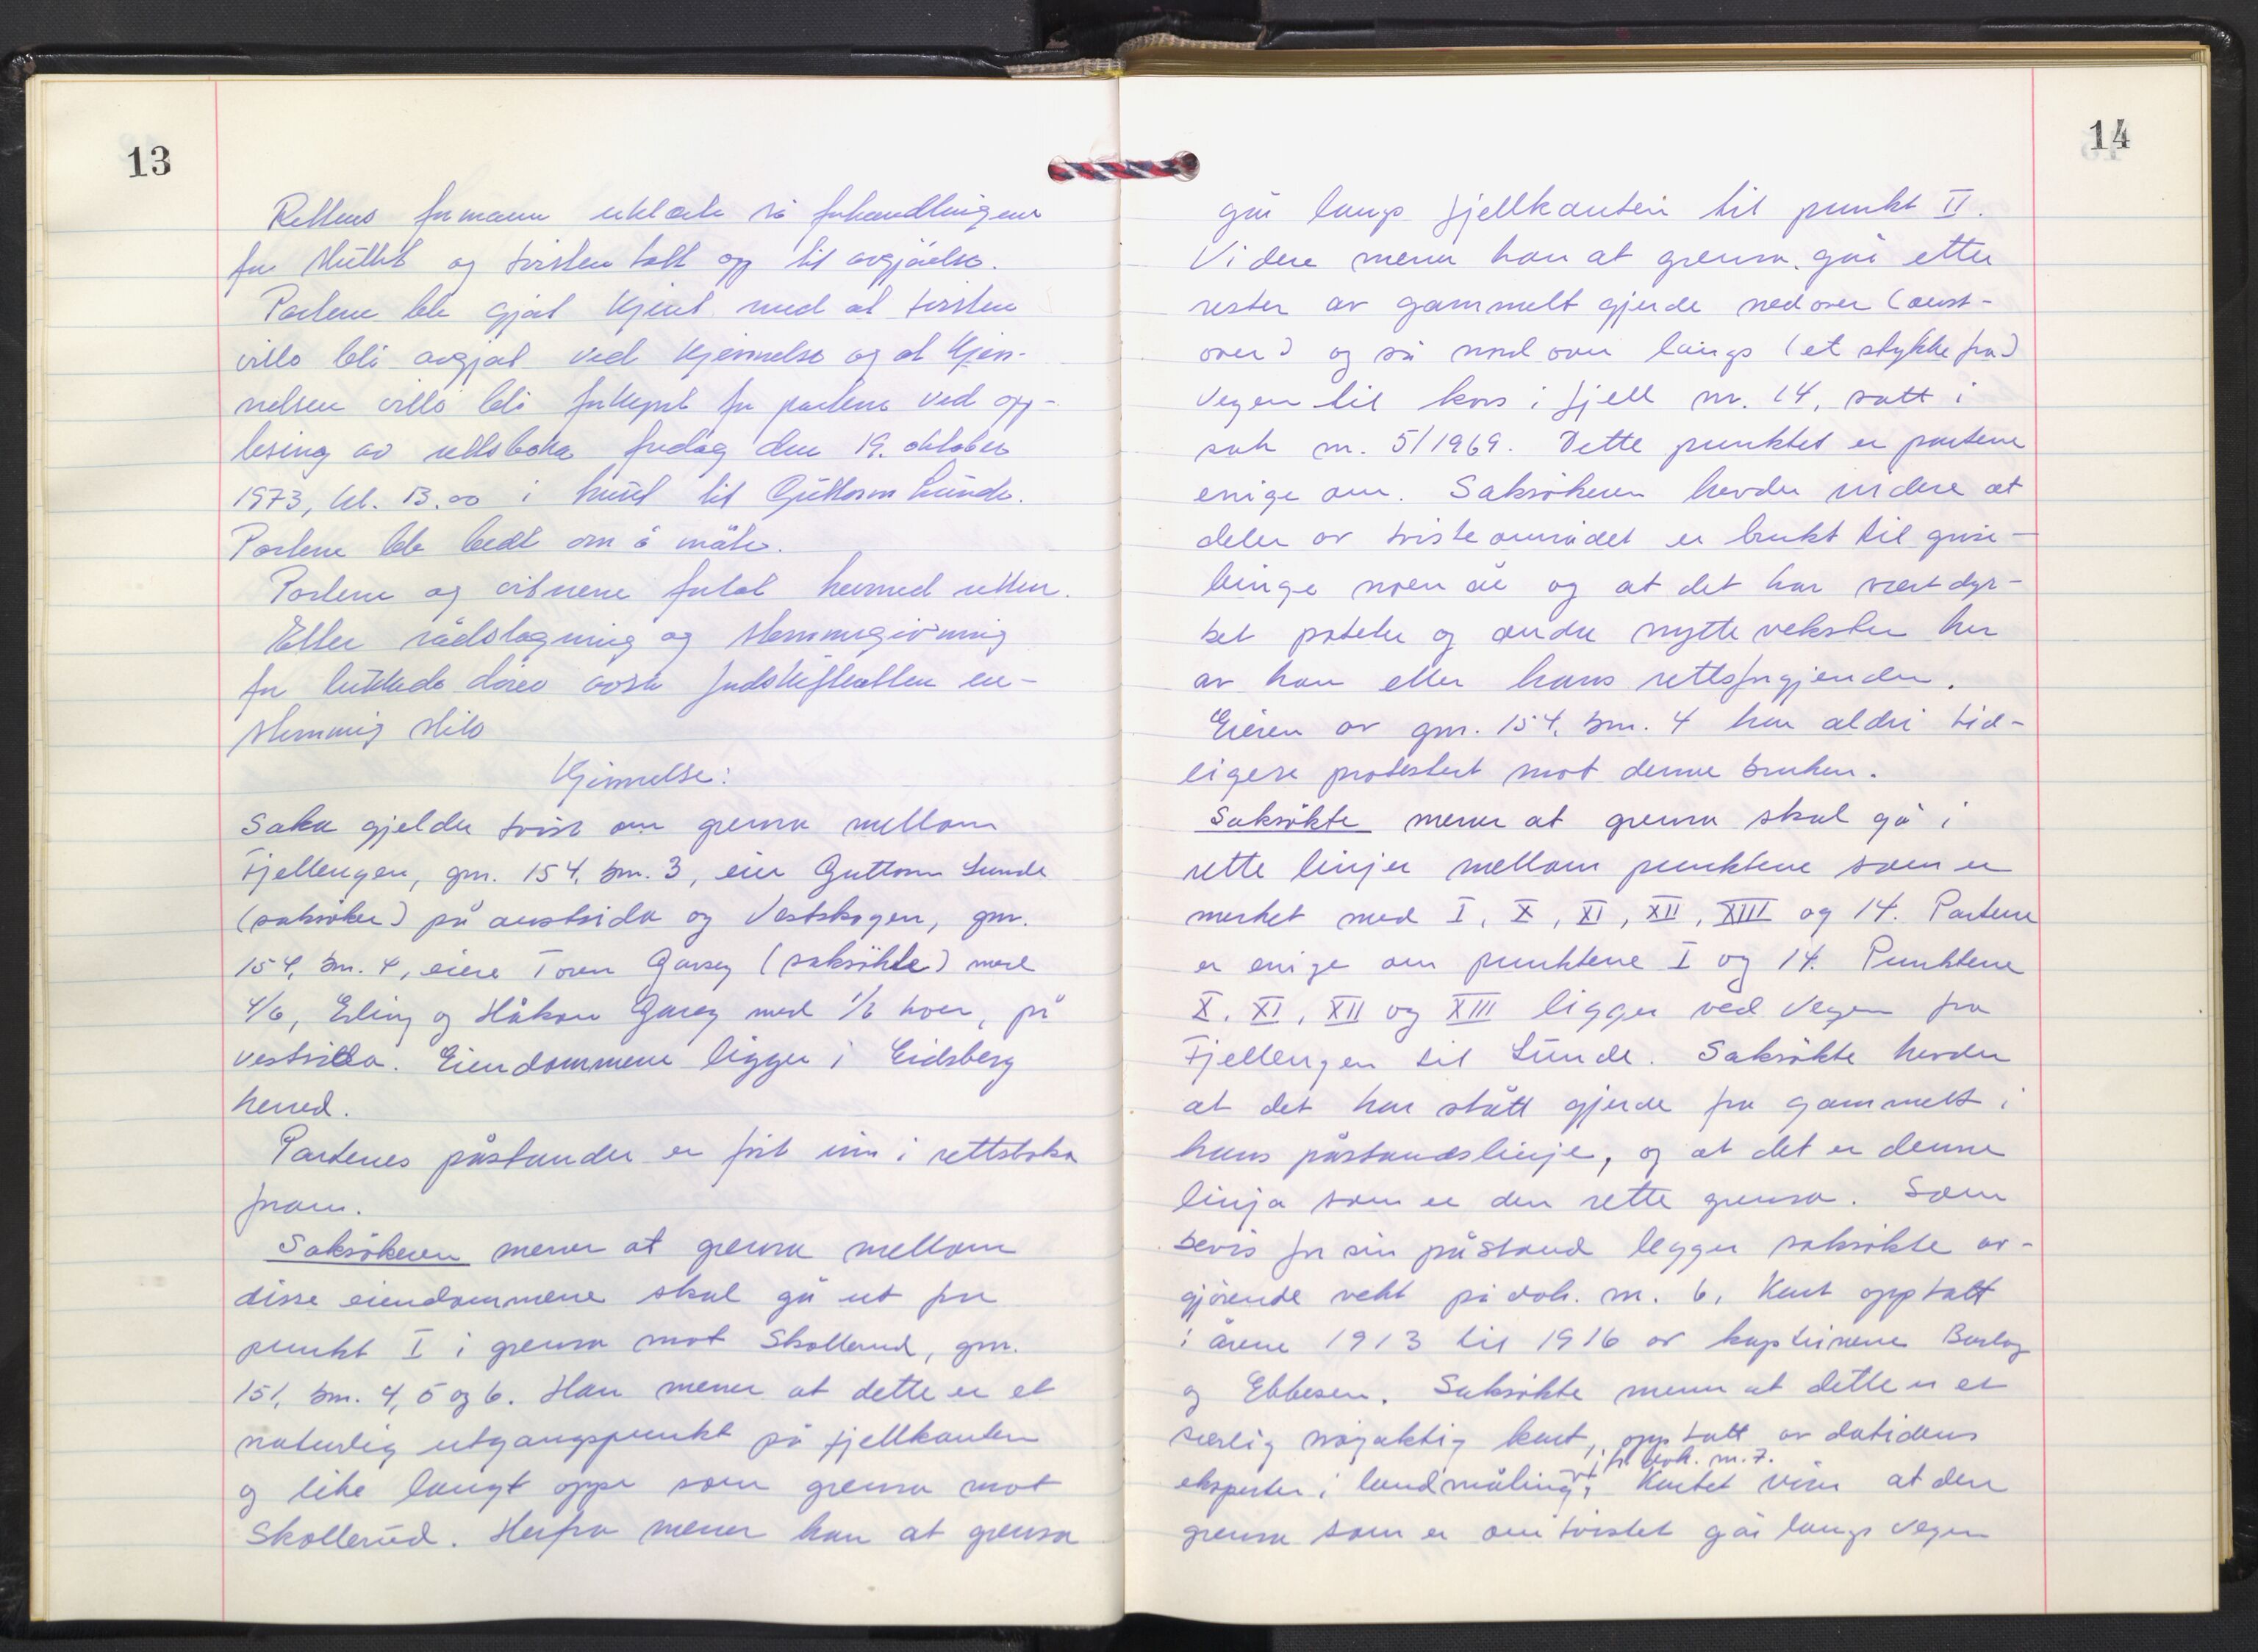 13
Rettens formann erklærte så forhandlingene
for sluttet og tvisten tatt opp til avgjörelse.
Partene ble gjort kjent med at tvisten
ville bli avgjort ved kjennelse og at kjen-
nelsen ville bli forkynt for partene ved opp-
lesing av rettsboka fredag den 19. oktober
1973, kl. 13.00 i huset til Guttorm Lunde.
Partene ble bedt om å möte.
Partene og vitnene forlot hermed retten.
Etter rådslagning og stemmegivning
for lukkede dörer avsa jordskifteretten en-
stemmig slik
Kjennelse:
Saka gjelder tvist om grensa mellom
Fjellengen, gnr. 154, bnr. 3, eier Guttorm Lunde
(saksöker) på austsida og Vestskogen, gnr.
154, bnr. 4, eiere Toren Garsey (saksökte) med
4/6, Erling og Håkon Garsey med 1/6 hver, på
vestsida. Eiendommene ligger i Eidsberg
herred.
Partenes påstander er fört inn i rettsboka
fram.
Saksökeren mener at grensa mellom
disse eiendommene skal gå ut fra
punkt I i grensa mot Skollerud, gnr.
151, bnr. 4, 5 og 6. Han mener at dette er et
naturlig utgangspunkt på fjellkanten
og like langt oppe som grensa mot
Skollerud. Herfra mener han at grensa
14
går langs fjellkanten til punkt II.
Videre mener han at grensa går etter
rester av gammelt gjerde nedover (aust-
over) og så nordover langs (et stykke fra)
vegen til kors i fjell nr. 14, satt i
sak nr. 5/1969. Dette punktet er partene
enige om. Saksökeren hevder videre at
deler av tvisteområdet er brukt til grise-
binge noen år og at det har vært dyr-
ket poteter og andre nyttevekster her
av han eller hans rettsforgjender.
Eieren av gnr. 154, bnr. 4 har aldri tid-
ligere protestert mot denne bruken.
Saksökte mener at grensa skal gå i
rette linjer mellom punktene som er
merket med I, X, XI, XII, XIII og 14. Partene
er enige om punktene I og 14. Punktene
X, XI, XII og XIII ligger ved vegen fra
Fjellengen til Lunde. Saksökte hevder
at det har stått gjerde fra gammelt i
hans påstandslinje, og at det er denne
linja som er den rette grensa. Som
bevis for sin påstand legger saksökte av-
gjörende vekt på dok. nr. 6, kart opptatt
i årene 1913 til 1916 av kapteinene
og Ebbesen. Saksökte mener at dette er et
særlig nöyaktig kart, opptatt av datidens
eksperter i landmåling, jfr. dok. nr. 7. Kartet viser at den
grensa som er omtvistet går langs vegen